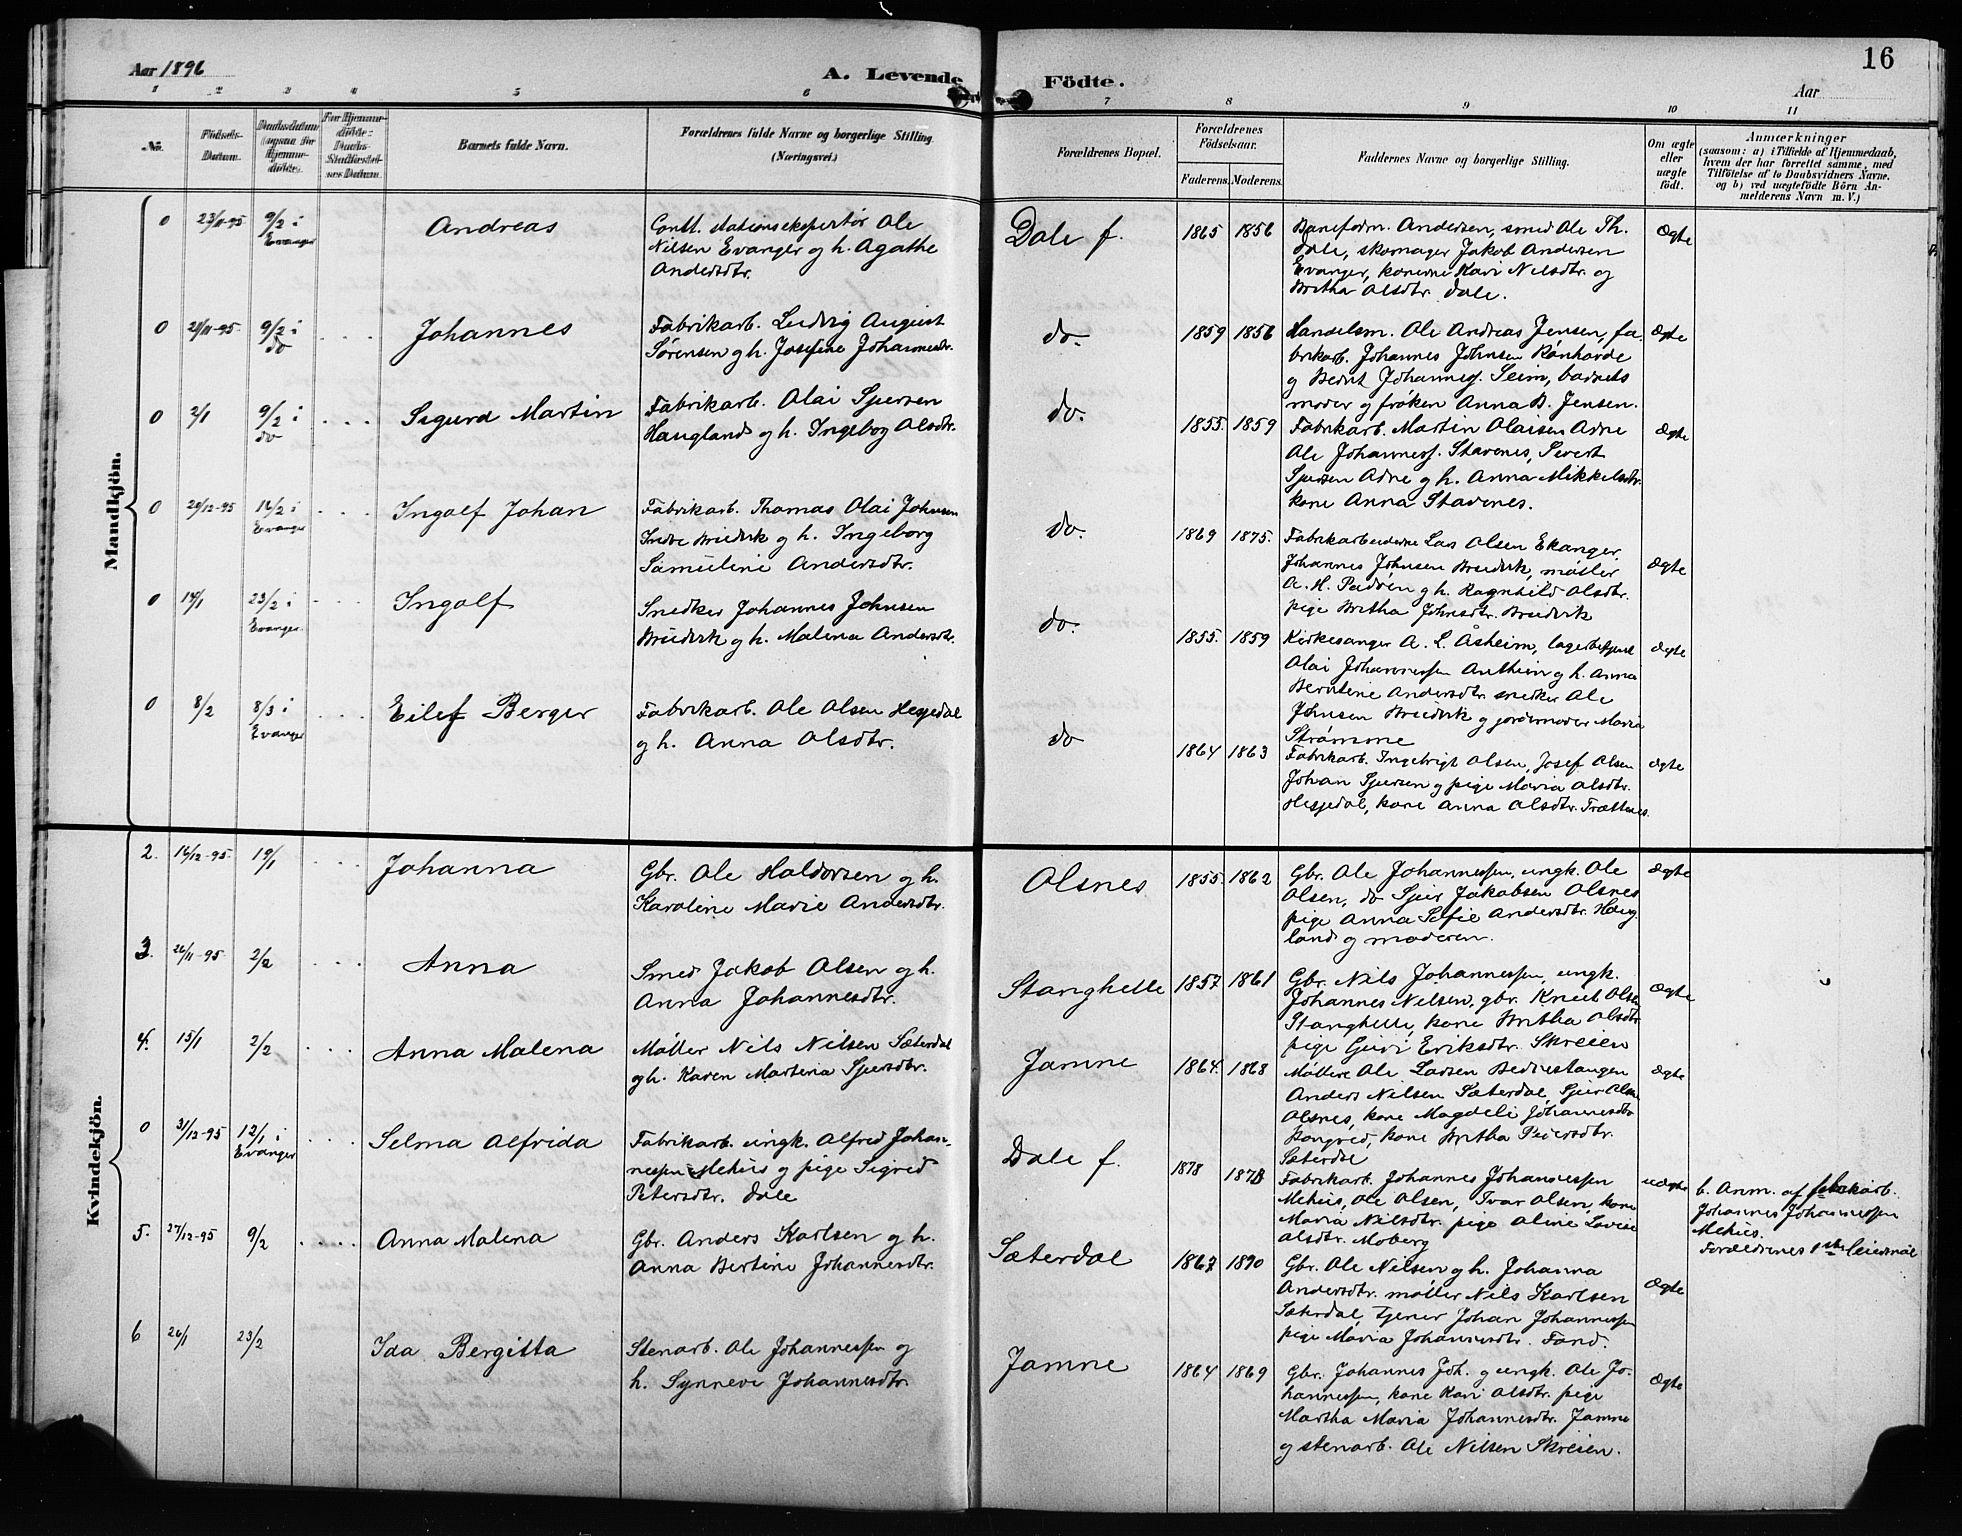 16
Aar 1896
A. Levende Födte.
Aar
1 2 3 4 5 6 7 8 9 10 11
No.
Födsels-
Datum.
Barnets fulde Navn.
Forældrenes fulde Navne og borgerlige Stilling
(Næringsvei.)
Forældrenes Bopæl.
Forældrenes
Födselsaar.
Faderens. Moderens.
Faddernes Navne og borgerlige Stilling.
Om ægte
eller
uægte
födt.
Anmærkninger
(saasom: a) i Tilfælde af Hjemmedaab,
hvem der har forrettet samme, med
Tilföielse af to Daabsvidners Navne.
og b) ved uægtefödte Börn An-
melderens Navn m. V.)
Mandkjön.
0 23/11-95 9/2 i Evanger
Andreas
Const. stationsekspeditør Ole
Nilsen Evanger og h. Agathe
Andersdtr.
Dale f.
1865 1856
Baneform. Andersen, smed Ole Th.
Dale, skomager Jakob Andersen
Evanger, konerne Kari Nilsdtr. og
Britha Olsdtr. Dale.
Ægte
0 9/2 i do
Johannes
Fabrikarb. Ludvig August
Sørensen og h. Josefine Johannesdtr.
do.
1859 1856
Handelsm. Ole Andreas Jensen, fa-
brikarb. Johannes Johnsen
og Bernt Johannes. Seim, barnets
moder og frøken Anna B. Jensen.
Ægte
0 2/1 9/2 i do
Sigurd Martin
Fabrikarb. Olai Sjursen
Haugland og h. Ingeborg Olsdtr.
do.
1855. 1859
Fabrikarb. Martin Olaisen Adne
Ole Johannes. Stavenes, Sivert
Sjursen Adne og h. Anna Mikkelsdtr.
kone Anna Stavenes.
Ægte
0 16/2 i Evanger
Ingolf Johan
Fabrikarb. Thomas Olai Johnsen
og h. Ingeborg
Samuline Andersdtr.
do.
1869 1875.
Fabrikarbeiderne Lars Olsen Ekanger,
Johannes Johnsen Bruvik, møller
A. H. og h. Ragnhild Olsdtr.
pige Britha Johnsdtr. Bruvik
Ægte
0 14/1 23/2 i Evanger
Ingolf
Snedker Johannes Johnsen
Bruvik og h. Malena Andersdtr.
do.
1855. 1859
Kirkesanger A. L. Åsheim, lagerbetjent
Olai Johannessen og h. Anna
Berntine Andersdtr. snedker Ole
Johnsen Bruvik og jordemoder Maria
Strømme
Ægte
0 8/2 8/3 i Evanger
Eilef Berger
Fabrikarb. Ole Olsen Hesjedal
og h. Anna Olsdtr.
do
1864 1863
Fabrikarb. Ingebrigt Olsen, Josef Olsen
Johan Sjursen og pige Maria Olsdtr.
Hesjedal, kone Anna Olsdtr. Trættenes.
Ægte
Kvindekjön.
2. 16/12-95. 19/1
Johanna
Gbr. Ole Haldorsen og h.
Karoline Marie Andersdtr.
Olsnes
1855. 1862
Gbr. Ole Johannessen, ungk. Ole
Olsen, do Sjur Jakobsen Olsnes
pige Anna Sofie Andersdtr. Haug-
land og moderen.
Ægte
3. 26/11-95. 2/2
Anna
Smed Jakob Olsen og h.
Anna Johannesdtr.
Stanghelle
1857 1861
Gbr. Nils Johannessen, ungk.
Johannes Nilsen, gbr. Knut Olsen
Stanghelle, kone Britha Olsdtr.
pige Guri Eriksdtr. Skreien
Ægte
4. 15/1 2/2
Anna Malena
Møller Nils Nilsen Sæterdal
og h. Karen Martena Sjursdtr.
Jamne
1864. 1868
Møllere Ole Larsen
Anders Nilsen Sæterdal, Sjur Olsen
Olsnes, kone Magdeli Johannesdtr.
kone Britha Pedersdtr.
Sæterdal
Ægte
0 31/12-95 12/1 i Evanger
Selma Alfrida
Fabrikarb. ungk. Alfred Johan-
nessen Mehus og pige Sigrid
Petersdtr. Dale
Dale f.
1878
Fabrikarb. Johannes Johannessen
Mehus, Ole Olsen, Ivar Olsen, kone
Maria Nilsdtr. pige Oline Lovise
Olsdtr. Moberg
uægte
b. Anm. af fabrikarb.
Johannes Johannessen
Mehus.
Forældrenes 1ste leiermål
5. 27/12-95 9/2
Anna Malena
Gbr. Anders Karlsen og h.
Anna Bertine Johannesdtr.
Sæterdal
1867 1890
Gbr. Ole Nilsen og h. Johanna
Andersdtr. møller Nils Karlsen
Sæterdal, tjener Johan Johannessen
pige Maria Johannesdtr. Fand.
Ægte
6 26/1 23/2
Ida Bergitta
Stenarb. Ole Johannessen og
h. Synneve Johannesdtr.
Jamne
1864 1869
Gbr. Johannes Joh. og ungk. Ole Jo-
hannessen, kone Kari Olsdtr. pige
Martha Maria Johannesdtr. Jamne
og stenarb. Ole Nilsen Skreien.
Ægte